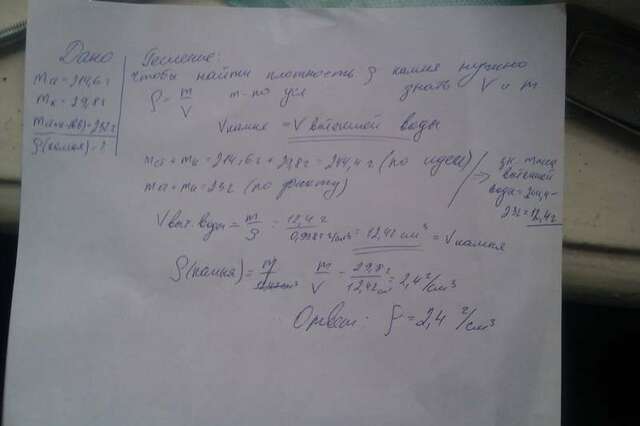 Дано
mа = 214,6 г
mк = 29,8 г
232 г
ρ(камня) - ?
Решение:
Чтобы найти плотность ρ камня нужно
знать V и m
ρ = m/V m - по усл
Vкамня = V вытесненной воды
mа + mк = 214,6 г + 29,8 г = 244,4 г (по идее)
mа + mк = 232 (по факту)
→ масса
вытесненной
воды = 244,4 -
232 = 12,4 г
V выт. воды = m/ρ = 12,4 г/0,998 г/см³ = 12,42 см³ = Vкамня
ρ(камня) = m/V = 29,8 г/12,42 см³ = 2,4 г/см³
Ответ: ρ = 2,4 г/см³